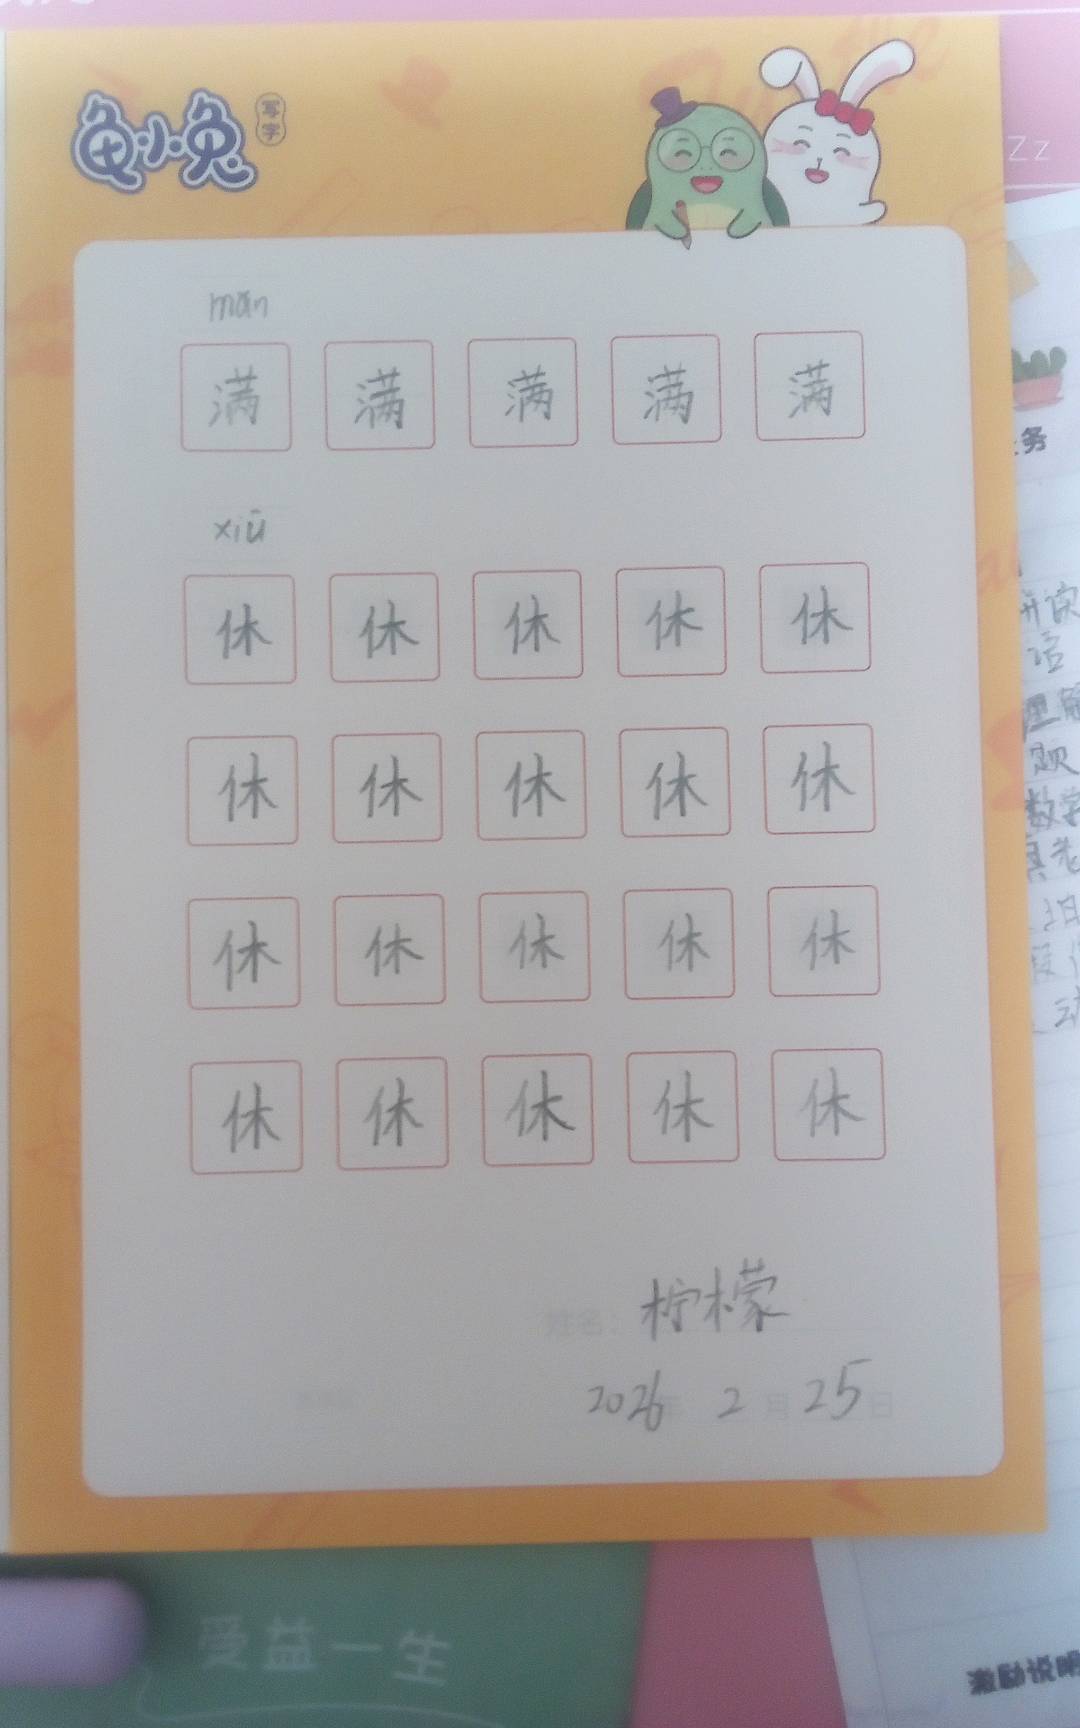 龟小兔
写字
Zz
mǎn
满 满 满 满 满
xiū
休 休 休 休 休
休 休 休 休 休
休 休 休 休 休
休 休 休 休 休
姓名: 柠檬
2026年 2月 25日
务
语
理解
题
数学
受益一生
激励说明